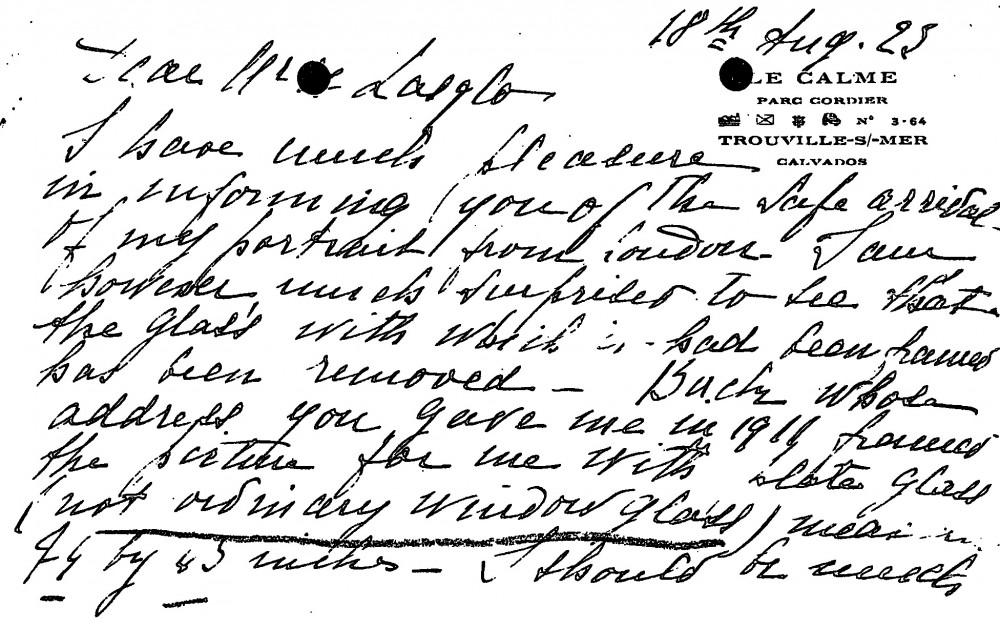 18th Aug. 23
LE CALME
PARC CORDIER
N° 3-64
TROUVILLE-S/-MER
CALVADOS
Dear Mr. de Laszlo
I have much pleasure
in informing you of the safe arrival
of my portrait from London. I am
however much surprised to see that
the glass with which it had been framed
has been removed – Buck whose
address you gave me in 1911 framed
the picture for me with plate glass
(not ordinary window glass)
by inches – I should be much